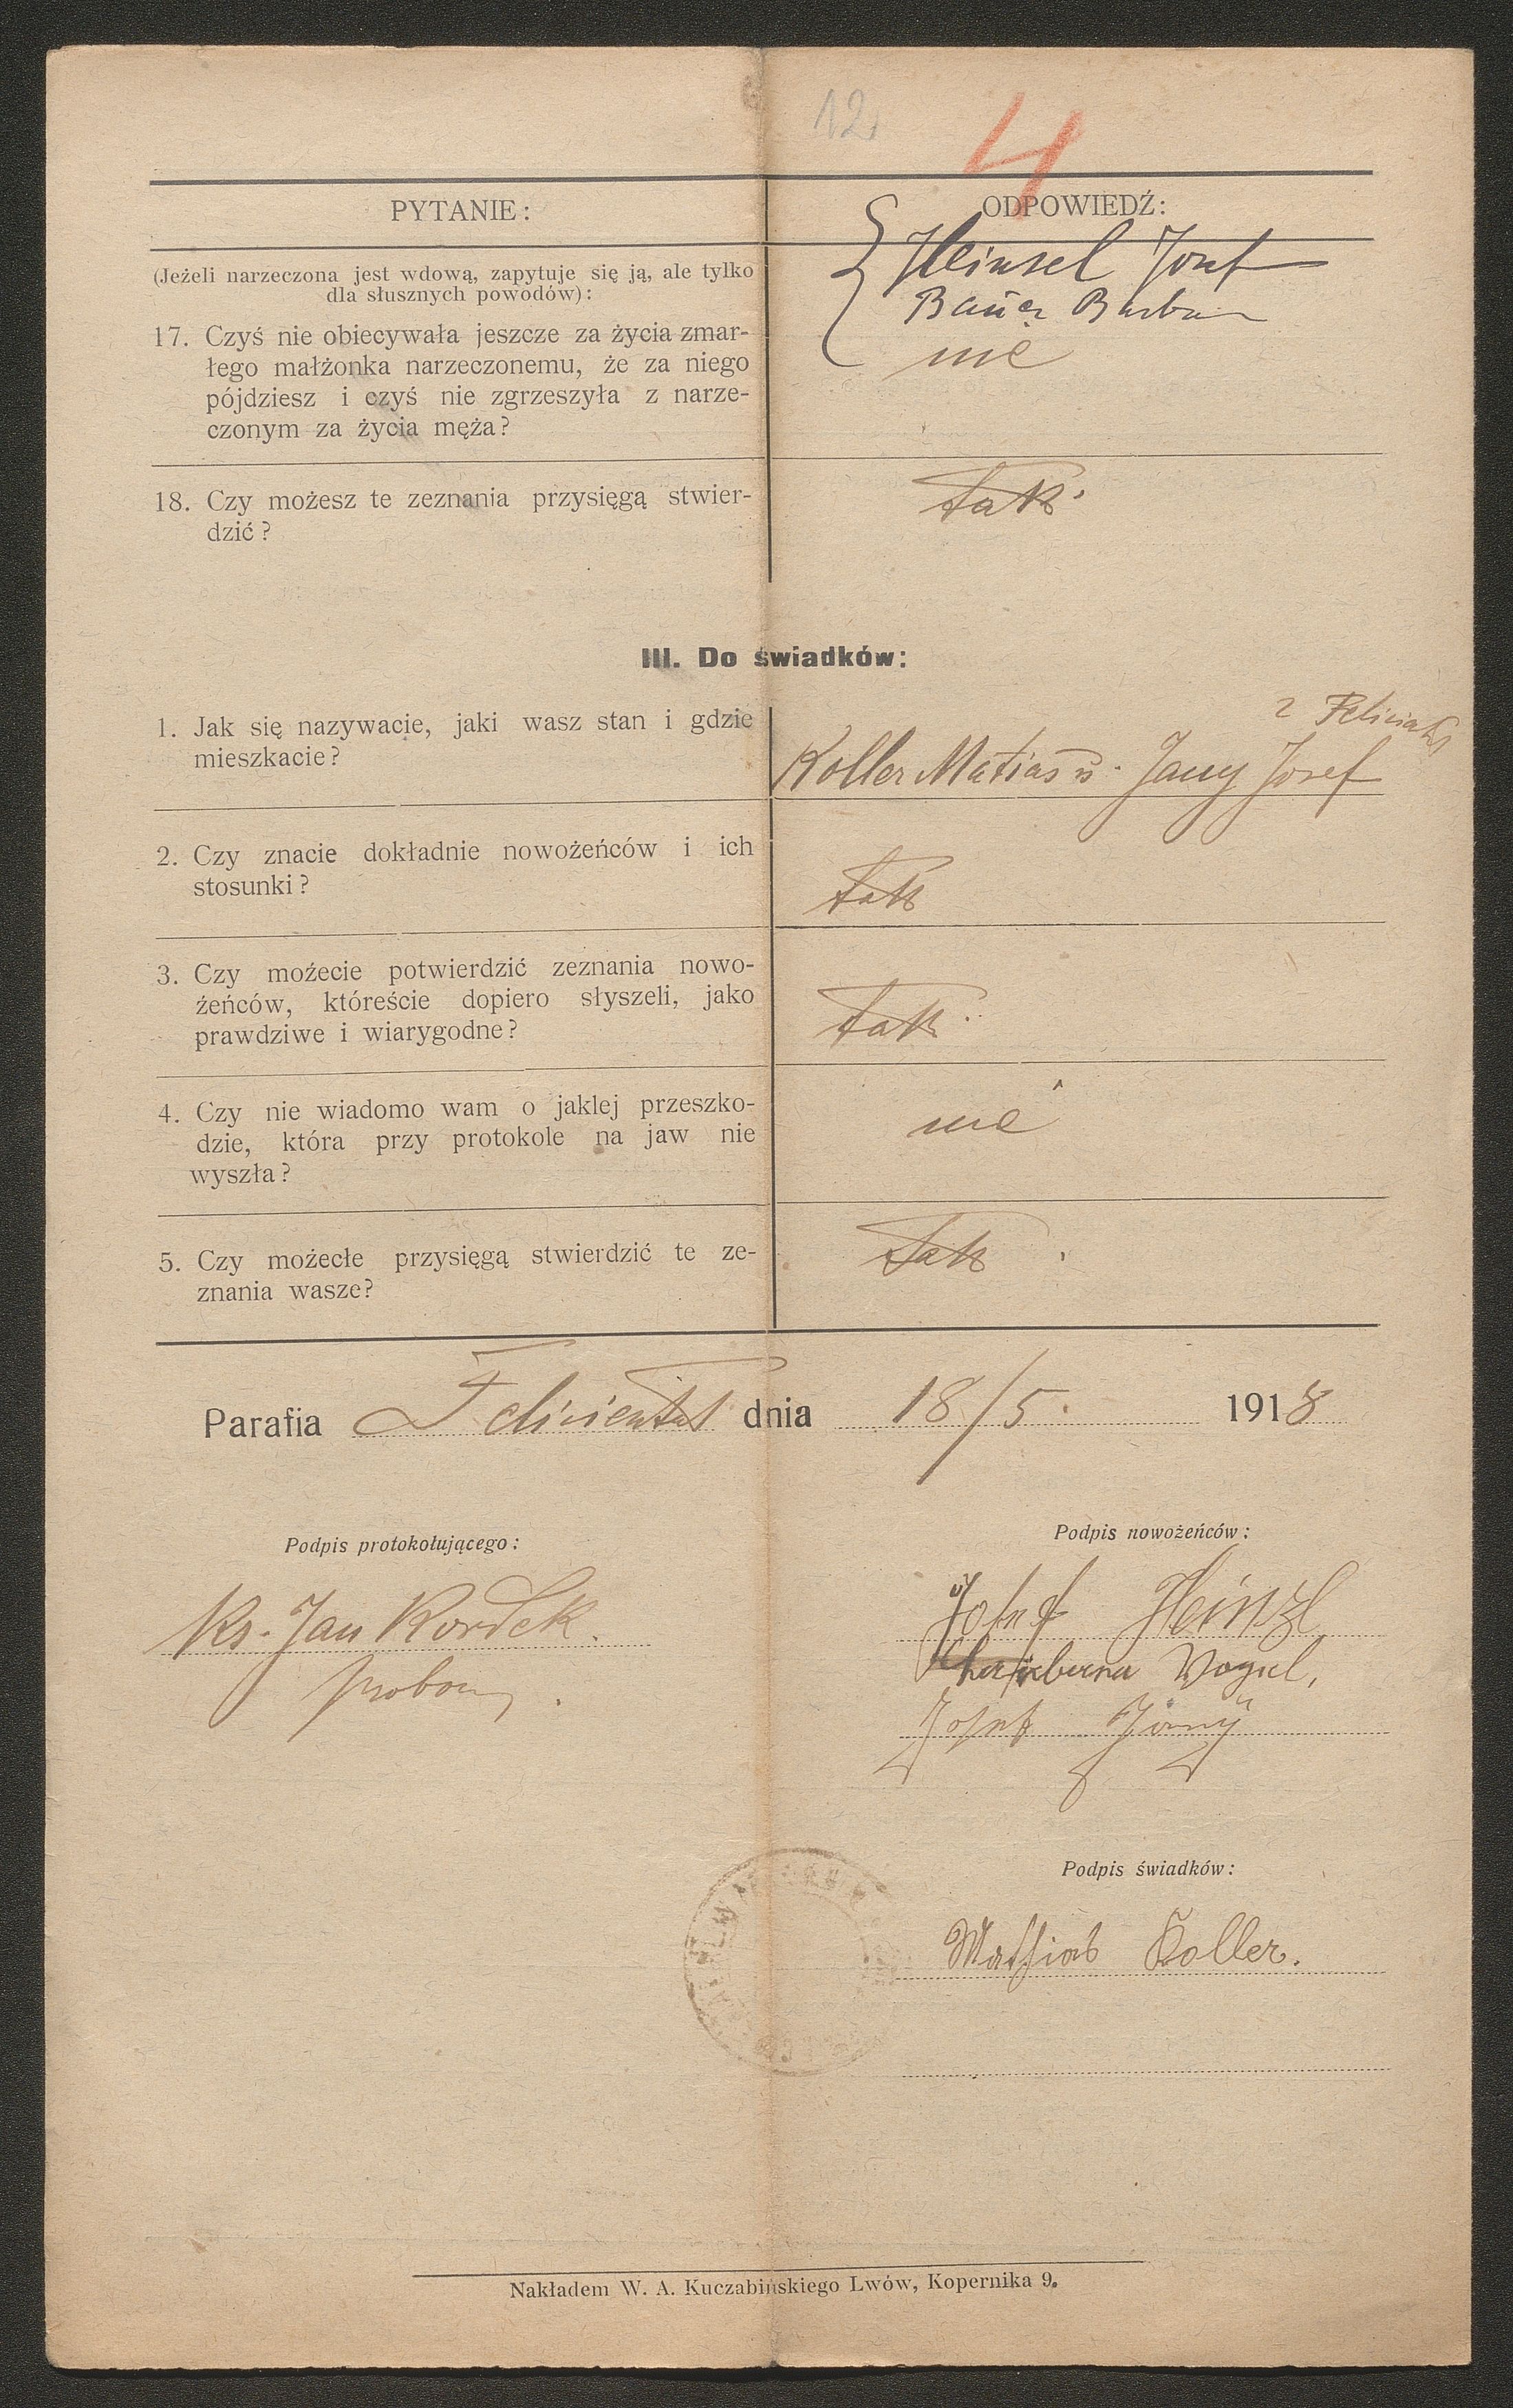 12
4
PYTANIE:
ODPOWIEDŹ:
Heinsel Josef
Bauer Barbara
(Jeżeli narzeczona jest wdową, zapytuje się ją, ale tylko
dla słusznych powodów):
17. Czyś nie obiecywała jeszcze za życia zmar-
łego małżonka narzeczonemu, że za niego
pójdziesz i czyś nie zgrzeszyła z narze-
czonym za życia męża?
nie
18. Czy możesz te zeznania przysięgą stwier-
dzić?
tak
III. Do świadków:
1. Jak się nazywacie, jaki wasz stan i gdzie
mieszkacie?
z
Koller Matias Jany Josef
2. Czy znacie dokładnie nowożeńców i ich
stosunki?
tak
3. Czy możecie potwierdzić zeznania nowo-
żeńców, któreście dopiero słyszeli, jako
prawdziwe i wiarygodne?
tak
4. Czy nie wiadomo wam o jaklej przeszko-
dzie, która przy protokole na jaw nie
wyszła?
nie
5. Czy możecłe przysięgą stwierdzić te ze-
znania wasze?
tak
Parafia Felicienthal dnia 18/5. 1918
Podpis protokołującego:
Podpis nowożeńców:
Ks. Jan Kordek.
Josef Heinzl
Vogel,
Josef Jany
Podpis świadków:
Mathias Koller.
Nakładem W. A. Kuczabińskiego Lwów, Kopernika 9.